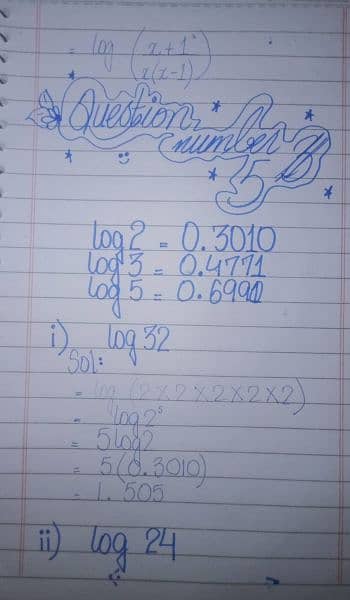 = log (x+1 / x(x-1))
Question
number
5
log 2 = 0.3010
log 3 = 0.4771
log 5 = 0.6990
i) log 32
Sol:
= log (2×2×2×2×2)
= log 2⁵
= 5 log 2
= 5(0.3010)
= 1.505
ii) log 24